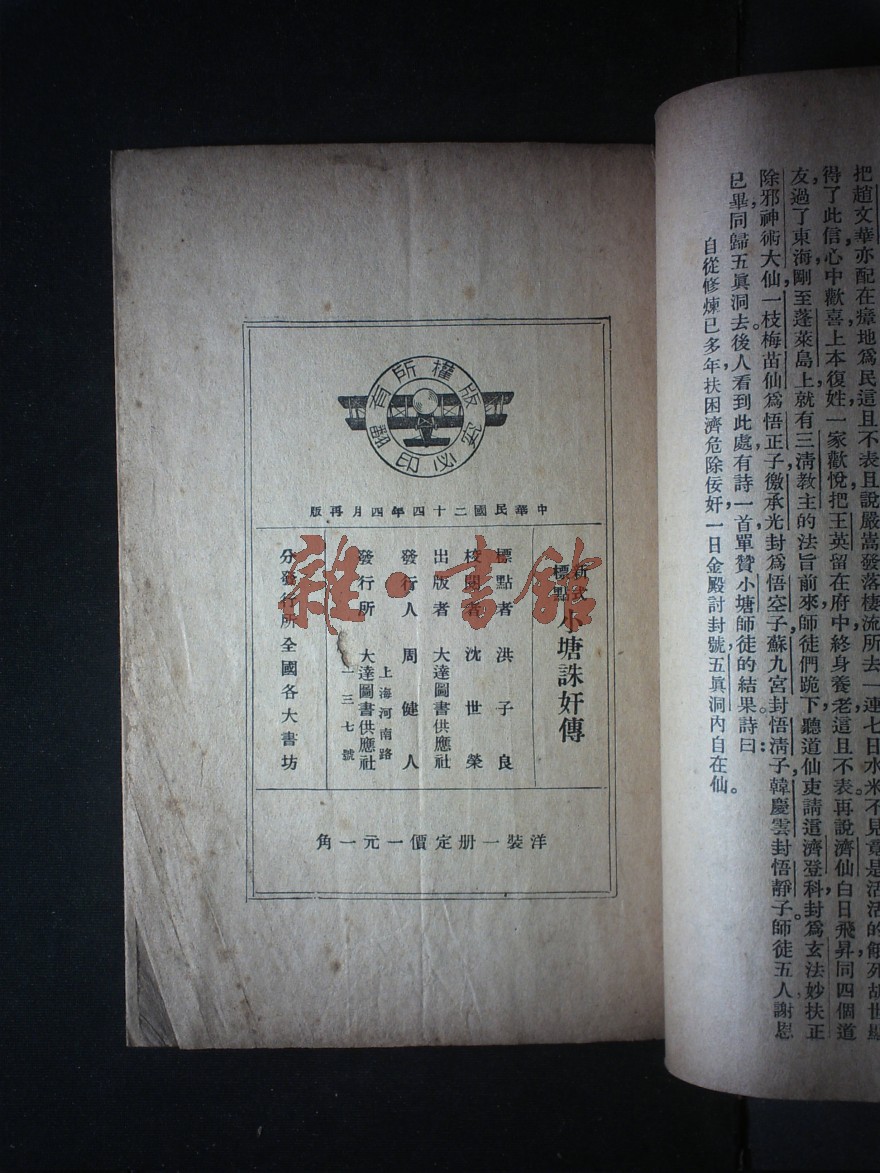 把趙文華亦配在瘴地爲民這且不表且說嚴嵩發落棲流所去，一連七日水米不見竟是活活的餓死胡世
得了此信心中歡喜上本復姓一家歡悅把王英留在府中終身養老這且不表。再說濟仙白日飛昇同四個道
友過了東海剛至蓬萊島上就有三淸敎主的法旨前來師徒們跪下聽道仙吏請道濟登科封爲玄法妙扶正
除邪神術大仙一枝梅苗仙爲悟正子徵承光封爲悟空子蘇九宮封悟淸子韓慶雲封悟靜子。師徒五人謝恩
已畢同歸五眞洞去。後人看到此處有詩一首單贊小塘師徒的結果。詩曰：
自從修煉已多年，扶困濟危除佞奸，一日金殿討封號，五眞洞內自在仙。
版權所有
翻印必究
中華民國二十四年四月再版
新式標點 小塘誅奸傳
標點者 洪子良
校閱者 沈世榮
出版者 大達圖書供應社
發行人 周健人
發行所 大達圖書供應社
上海河南路
一三七號
分發行所 全國各大書坊
洋裝一册定價一元一角
雜·書館